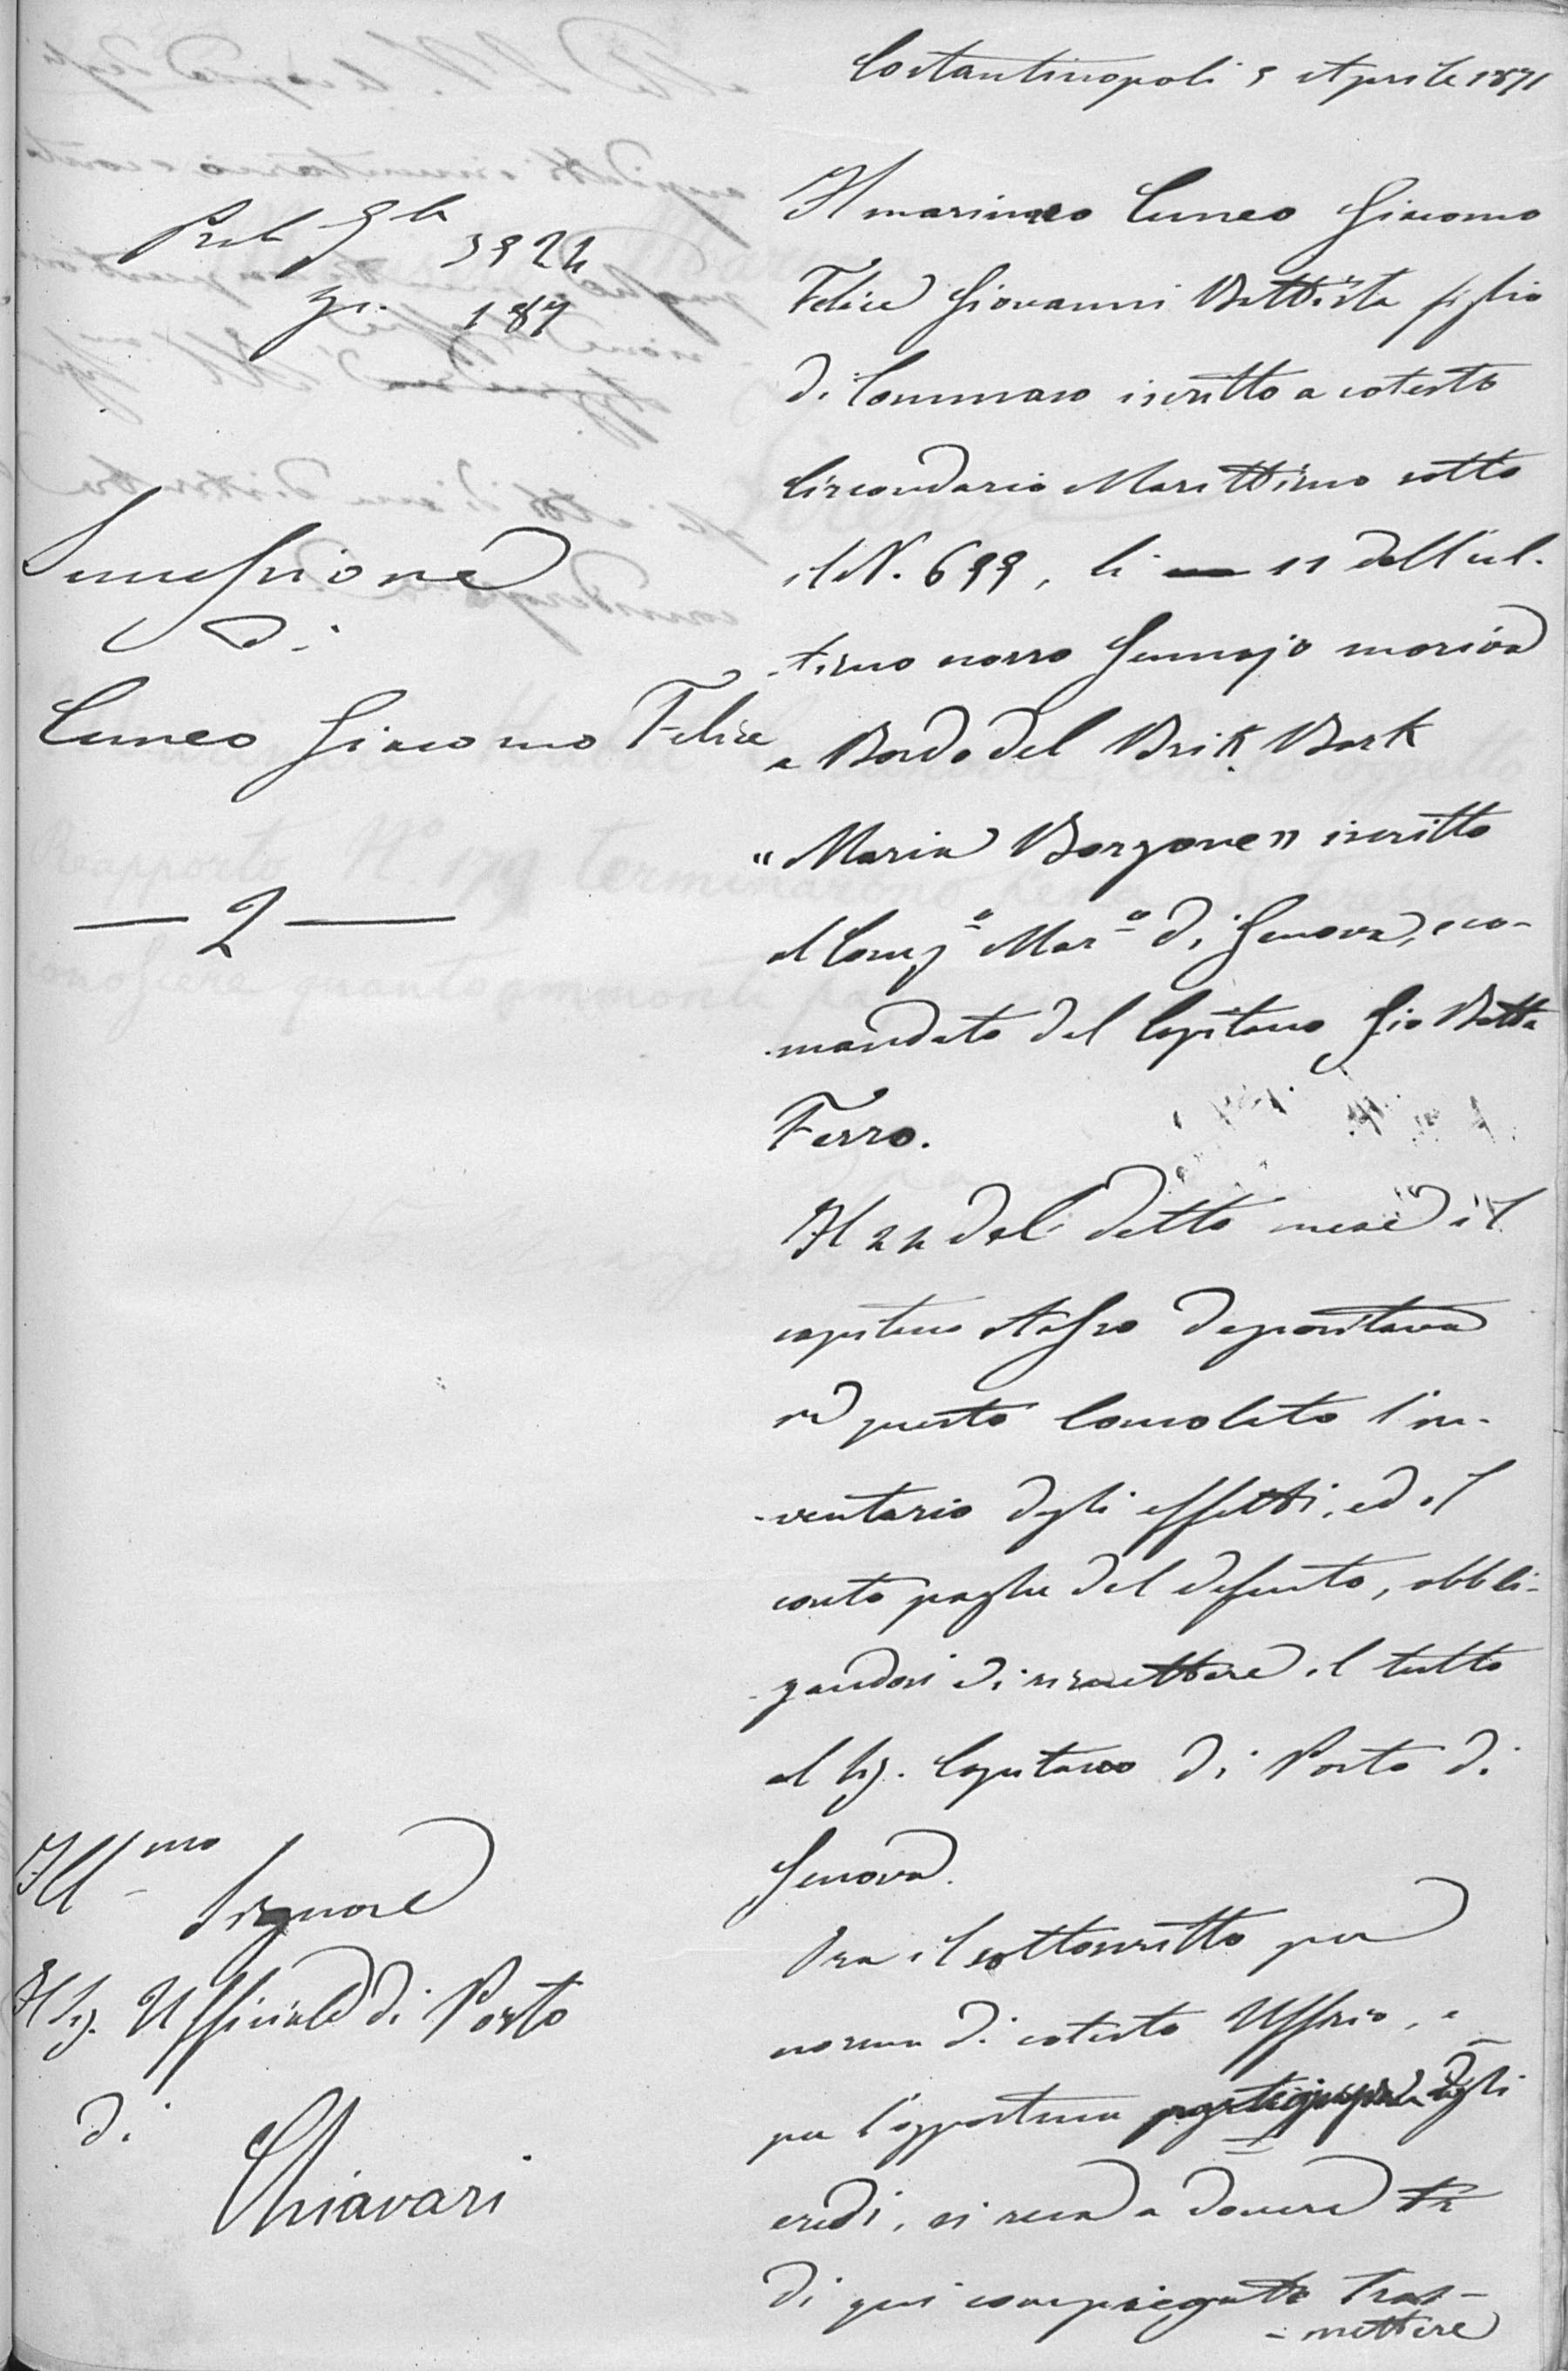 Costantinopoli 5 Aprile 1871
Prot Gle 3924
Zi. 187
Successione
di
Cuneo Giacomo Felice
— 2 —
Illmo Signore
Il Sig. Ufficiale di Porto
di
Chiavari
Il marinaro Cuneo Giacomo
Felice Giovanni Battista figlio
di Tommaso iscritto a cotesto
Circondario Marittimo sotto
il N. 699, li 11 dell'ul-
timo scorso Gennajo moriva
a Bordo del Brik Bark
"Maria Borzone" iscritto
al Comp.o Mar.o di Genova, e co-
mandato dal Capitano Gio Batta
Ferro.
Il 24 del detto mese il
capitano stesso depositava
in questo Consolato l'in-
ventario degli effetti, ed il
conto paghe del defunto, obbli-
gandosi di rimettere il tutto
al Sig. Capitano di Porto di
Genova.
Ora il sottoscritto per
norma di cotesto Uffizio, e
per l'opportuna degli
eredi, si reca a dovere
di qui compiegate Tras-
mettere